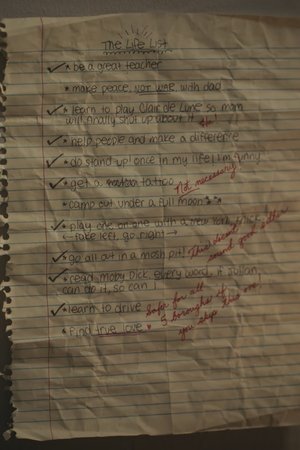 The Life List
✓ * be a great teacher
* make peace, not war, with dad
✓ * learn to play Clair de Lune so mom
will finally shut up about it
✓ * help people and make a difference
✓ * do stand up! once in my life I'm funny
✓ * get a tattoo
Not necessary
* camp out under a full moon
✓ * play one on one with a New York Knick
← fake left, go right →
This doesn't
sound good either
✓ * go all out in a mosh pit!
✓ * read Moby Dick, every word, if Julian
can do it, so can I
✓ * learn to drive
Safer for all
5 boroughs if
you skip this one
* find true love ♥